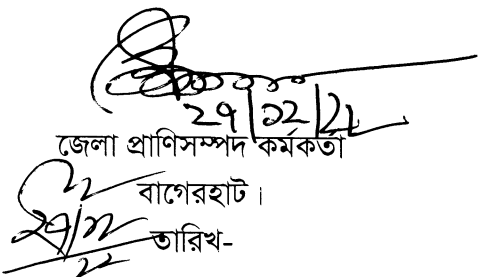 ২৭/১২/২২
জেলা প্রাণিসম্পদ কর্মকর্তা
বাগেরহাট।
তারিখ-